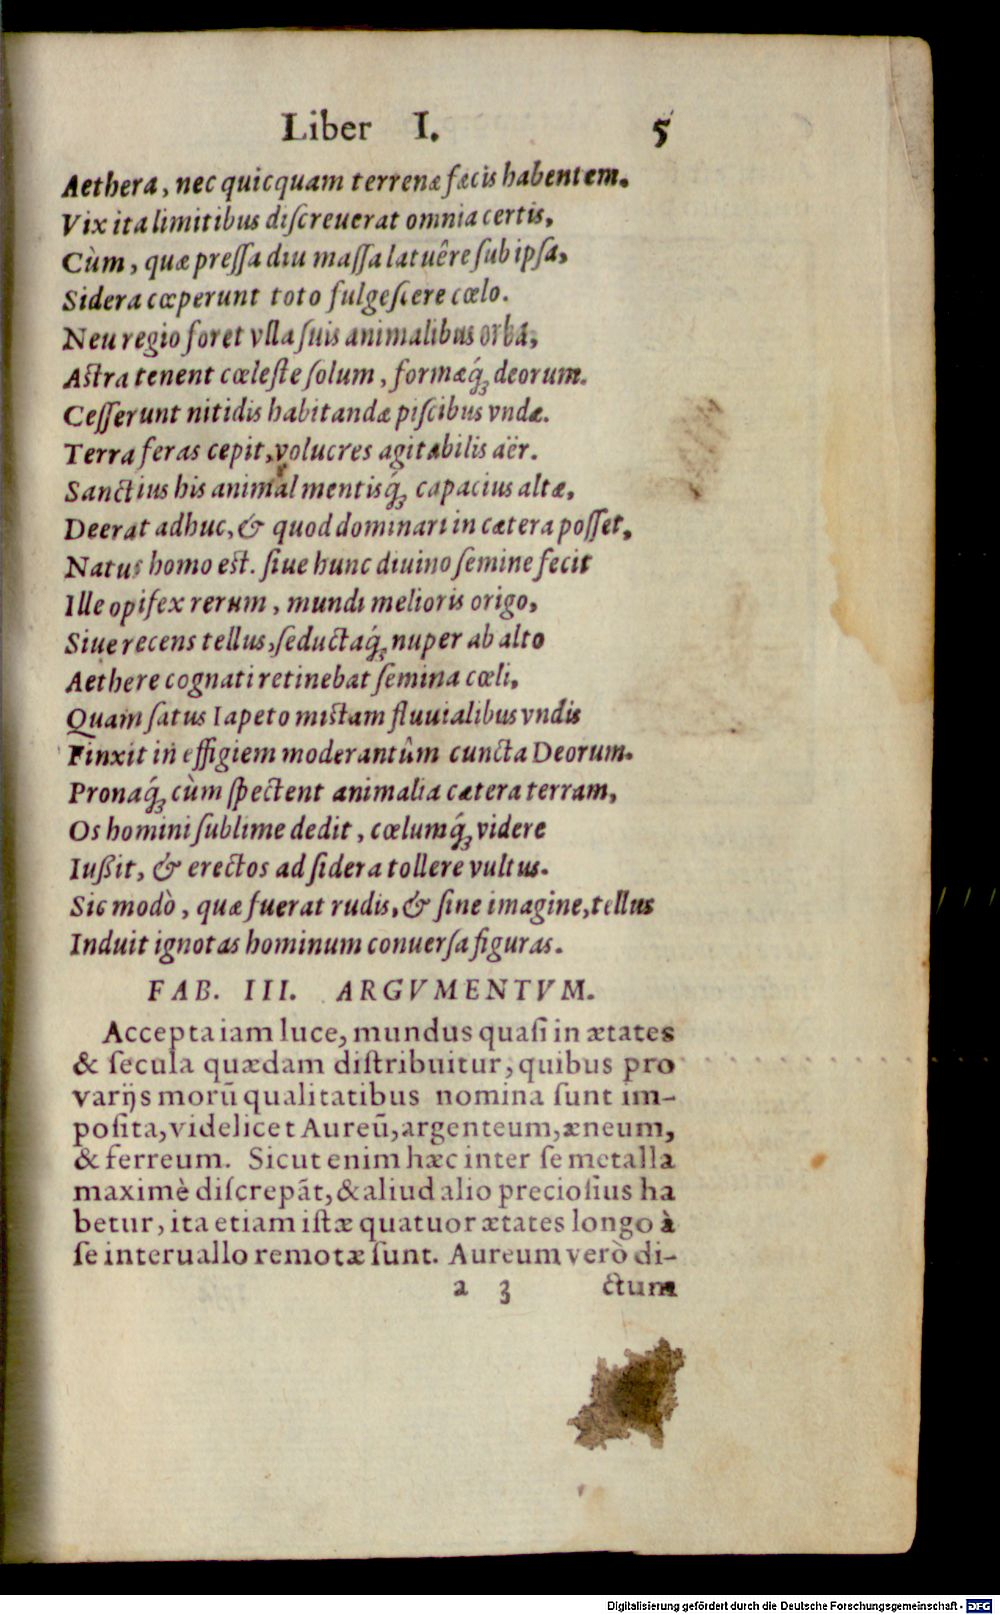 Liber I. 5
Aethera, nec quicquam terrenæ fæcis habentem.
Vix ita limitibus diſcreuerat omnia certis,
Cùm, quæ preſſa diu maſſa latuêre ſub ipſa,
Sidera cœperunt toto fulgeſcere cœlo.
Neu regio foret vlla ſuis animalibus orba,
Aſtra tenent cœleſte ſolum, formæq́ꝫ deorum.
Ceſſerunt nitidis habitandæ piſcibus vndæ.
Terra feras cepit, volucres agitabilis aër.
Sanctius his animal mentisq́ꝫ capacius altæ,
Deerat adhuc, & quod dominari in cætera poſſet,
Natus homo eſt. ſiue hunc diuino ſemine fecit
Ille opifex rerum, mundi melioris origo,
Siue recens tellus, ſeductaq́ꝫ nuper ab alto
Aethere cognati retinebat ſemina cœli,
Quam ſatus Iapeto miſtam fluuialibus vndis
Finxit in effigiem moderantûm cuncta Deorum.
Pronaq́ꝫ cùm ſpectent animalia cætera terram,
Os homini ſublime dedit, cœlumq́ꝫ videre
Iußit, & erectos ad ſidera tollere vultus.
Sic modò, quæ fuerat rudis, & ſine imagine, tellus
Induit ignotas hominum conuerſa figuras.
FAB. III. ARGVMENTVM.
Accepta iam luce, mundus quaſi in ætates
& ſecula quædam diſtribuitur, quibus pro
varijs morũ qualitatibus nomina ſunt im-
poſita, videlicet Aureũ, argenteum, æneum,
& ferreum. Sicut enim hæc inter ſe metalla
maximè diſcrepãt, & aliud alio precioſius ha
betur, ita etiam iſtæ quatuor ætates longo à
ſe interuallo remotæ ſunt. Aureum verò di-
a 3 ctum
Digitalisierung gefördert durch die Deutsche Forschungsgemeinschaft - DFG